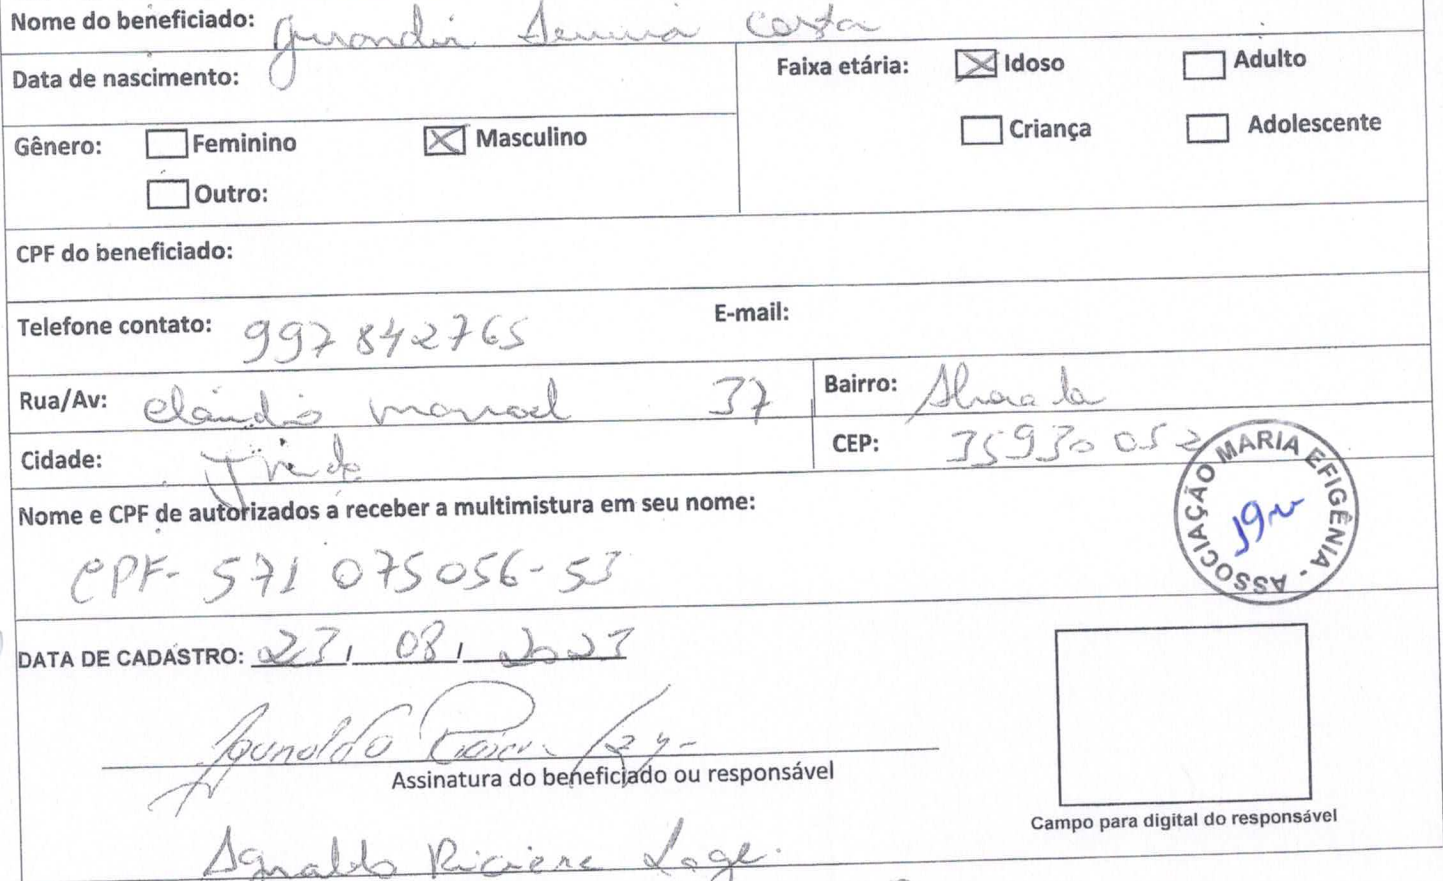 Nome do beneficiado: Jurandir Costa
Data de nascimento:
Faixa etária: Idoso Adulto
Criança Adolescente
Gênero: Feminino Masculino
Outro:
CPF do beneficiado:
Telefone contato: 997842765 E-mail:
Rua/Av: manoel 37 Bairro:
Cidade: CEP: 35930052
Nome e CPF de autorizados a receber a multimistura em seu nome:
CPF- 571 075056-53
ASSOCIAÇÃO MARIA EFIGÊNIA -
DATA DE CADASTRO: 23, 08, 2023
Assinatura do beneficiado ou responsável
Campo para digital do responsável
Agnaldo Riciere Lage.